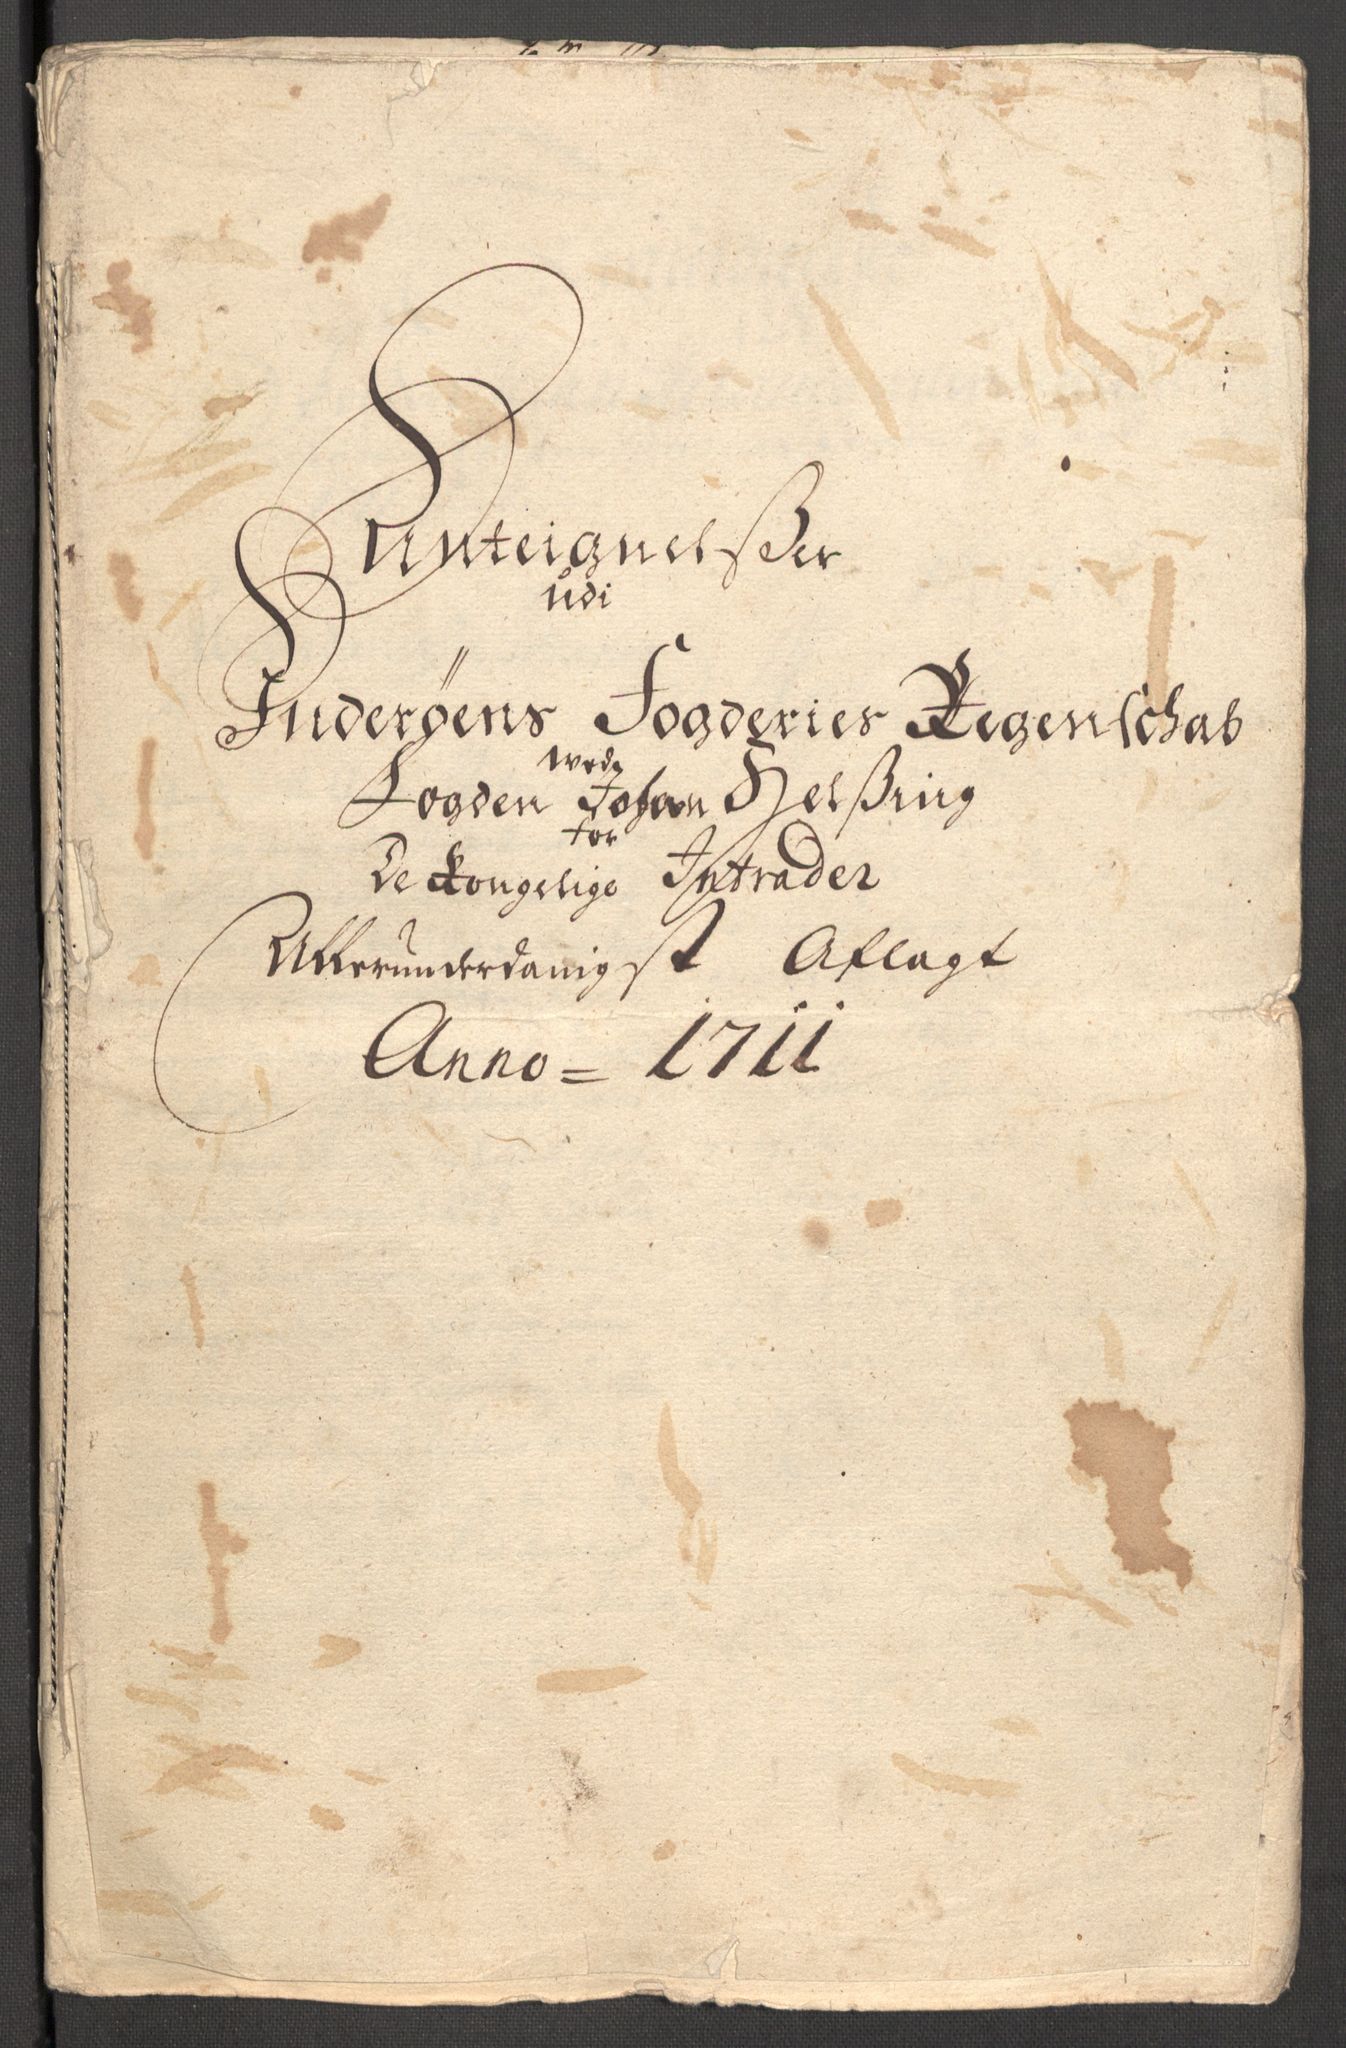 Anteignelßer
udi
Inderøens Fogderies Regenschab
wed
Fogden Johan Helßing
for
De Kongelige Intrader
Allerunderdanigst Aflagt
Anno = 1711